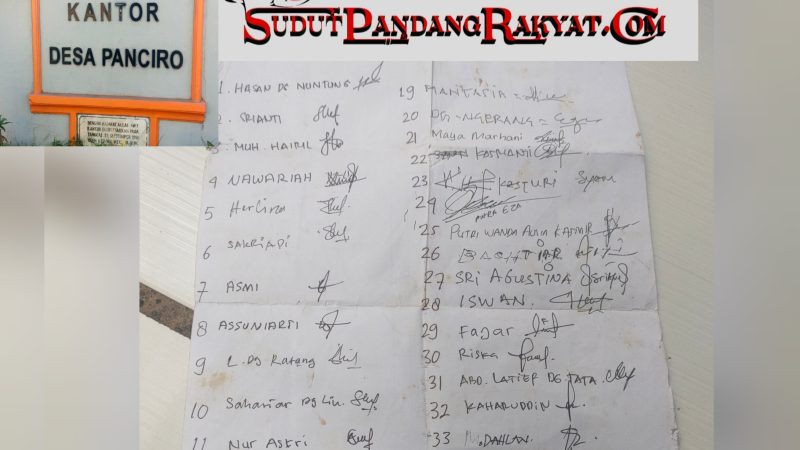 KANTOR
DESA PANCIRO
SUDUTPANDANGRAKYAT.COM
1. HASAN DG NUNTUNG
2. SRIANTI
3 MUH. HAIRIL
4 NAWARIAH
5 Herlina
6 SAKRIADI
7 ASMI
8 ASSUNIARTI
9 L. Dg Ratang
10 Sahariar Dg Liu.
11 Nur Astri
19 MANTASIA =
20 DG. NGERANG =
21 Maya Marhani
22 KASMANI
23 KASTURI
24 PUTRA EZA
25 PUTRI WANDA AULIA KASMIR
26 BACHTIAR
27 SRI AGUSTINA
28 ISWAN.
29 Fajar
30 Riska
31 ABD. LATIEF DG TATA.
32 KAHARUDDIN
33 M. DAHLAN.